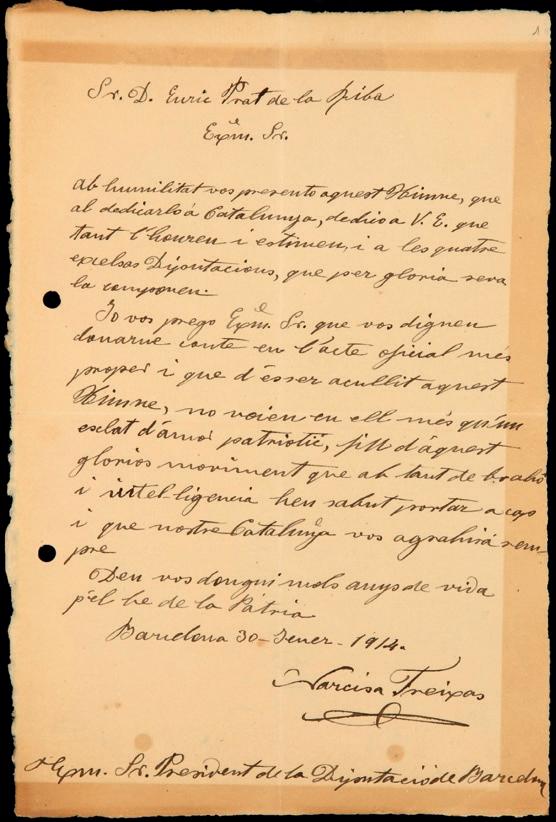 1
Sr. D. Enric Prat de la Riba
Exm. Sr.
Ab humilitat vos presento aquest Himne, que
al dedicarlo á Catalunya, dedico a V. E. que
tant l'honren i estimen, i a les quatre
excelsas Diputacions, que per gloria seva
la componen.
Jo vos prego Exm. Sr. que vos digneu
donarne conte en l'acte oficial més
proper i que d'ésser acullit aquest
Himne, no vejen en ell més qu'un
esclat d'amor patriotic, fill d'aquest
glorios moviment que ab tant de braho
i intel·ligencia heu sabut portar a cap
i que nostre Catalunya vos agrahirá sem
pre
Deu vos dongui mols anys de vida
p'el be de la Pátria
Barcelona 30-Jener-1914.
Narcisa Freixas
Exm. Sr. President de la Diputació de Barcelona